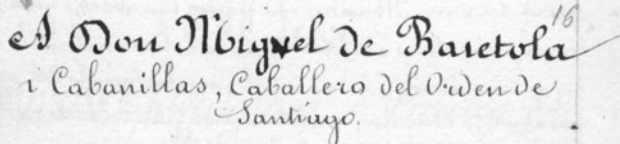 16
A Don Miguel de Baietola
i Cabanillas, Caballero del Orden de
Santiago.